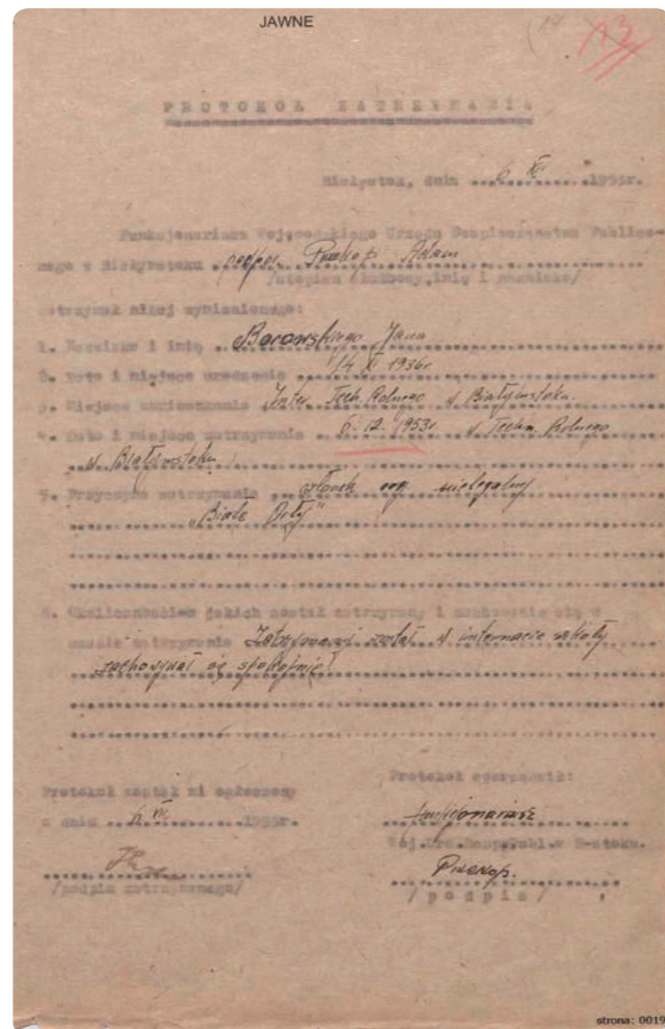 JAWNE
13
PROTOKÓŁ ZATRZYMANIA
Białystok, dnia 6 XII 1953r.
Funkcjonariusz Wojewódzkiego Urzędu Bezpieczeństwa Publicz-
nego w Białymstoku podpor. Prokop Adam
/stopień służbowy, imię i nazwisko/
zatrzymał niżej wymienionego:
1. Nazwisko i imię Borowskiego Jana
2. Data i miejsce urodzenia 14 XI 1936r
3. Miejsce zamieszkania Inter. Tech. Rolnego w Białymstoku.
4. Data i miejsce zatrzymania 6. 12. 1953r. w Techn. Rolnego
w Białymstoku
5. Przyczyna zatrzymania członek org. nielegalnej
"Białe Orły"
6. Okolicznościach jakich został zatrzymany i zachowanie się w
czasie zatrzymania Zatrzymany został w internacie szkoły
zachowywał się spokojnie
Protokół został mi ogłoszony
w dniu 6 XII 1953r.
/podpis zatrzymanego/
Protokół sporządził:
funkcjonariusz
Woj.Urz.Bezp.Publ.w B-stoku.
Prokop.
/ p o d p i s /
strona: 0019